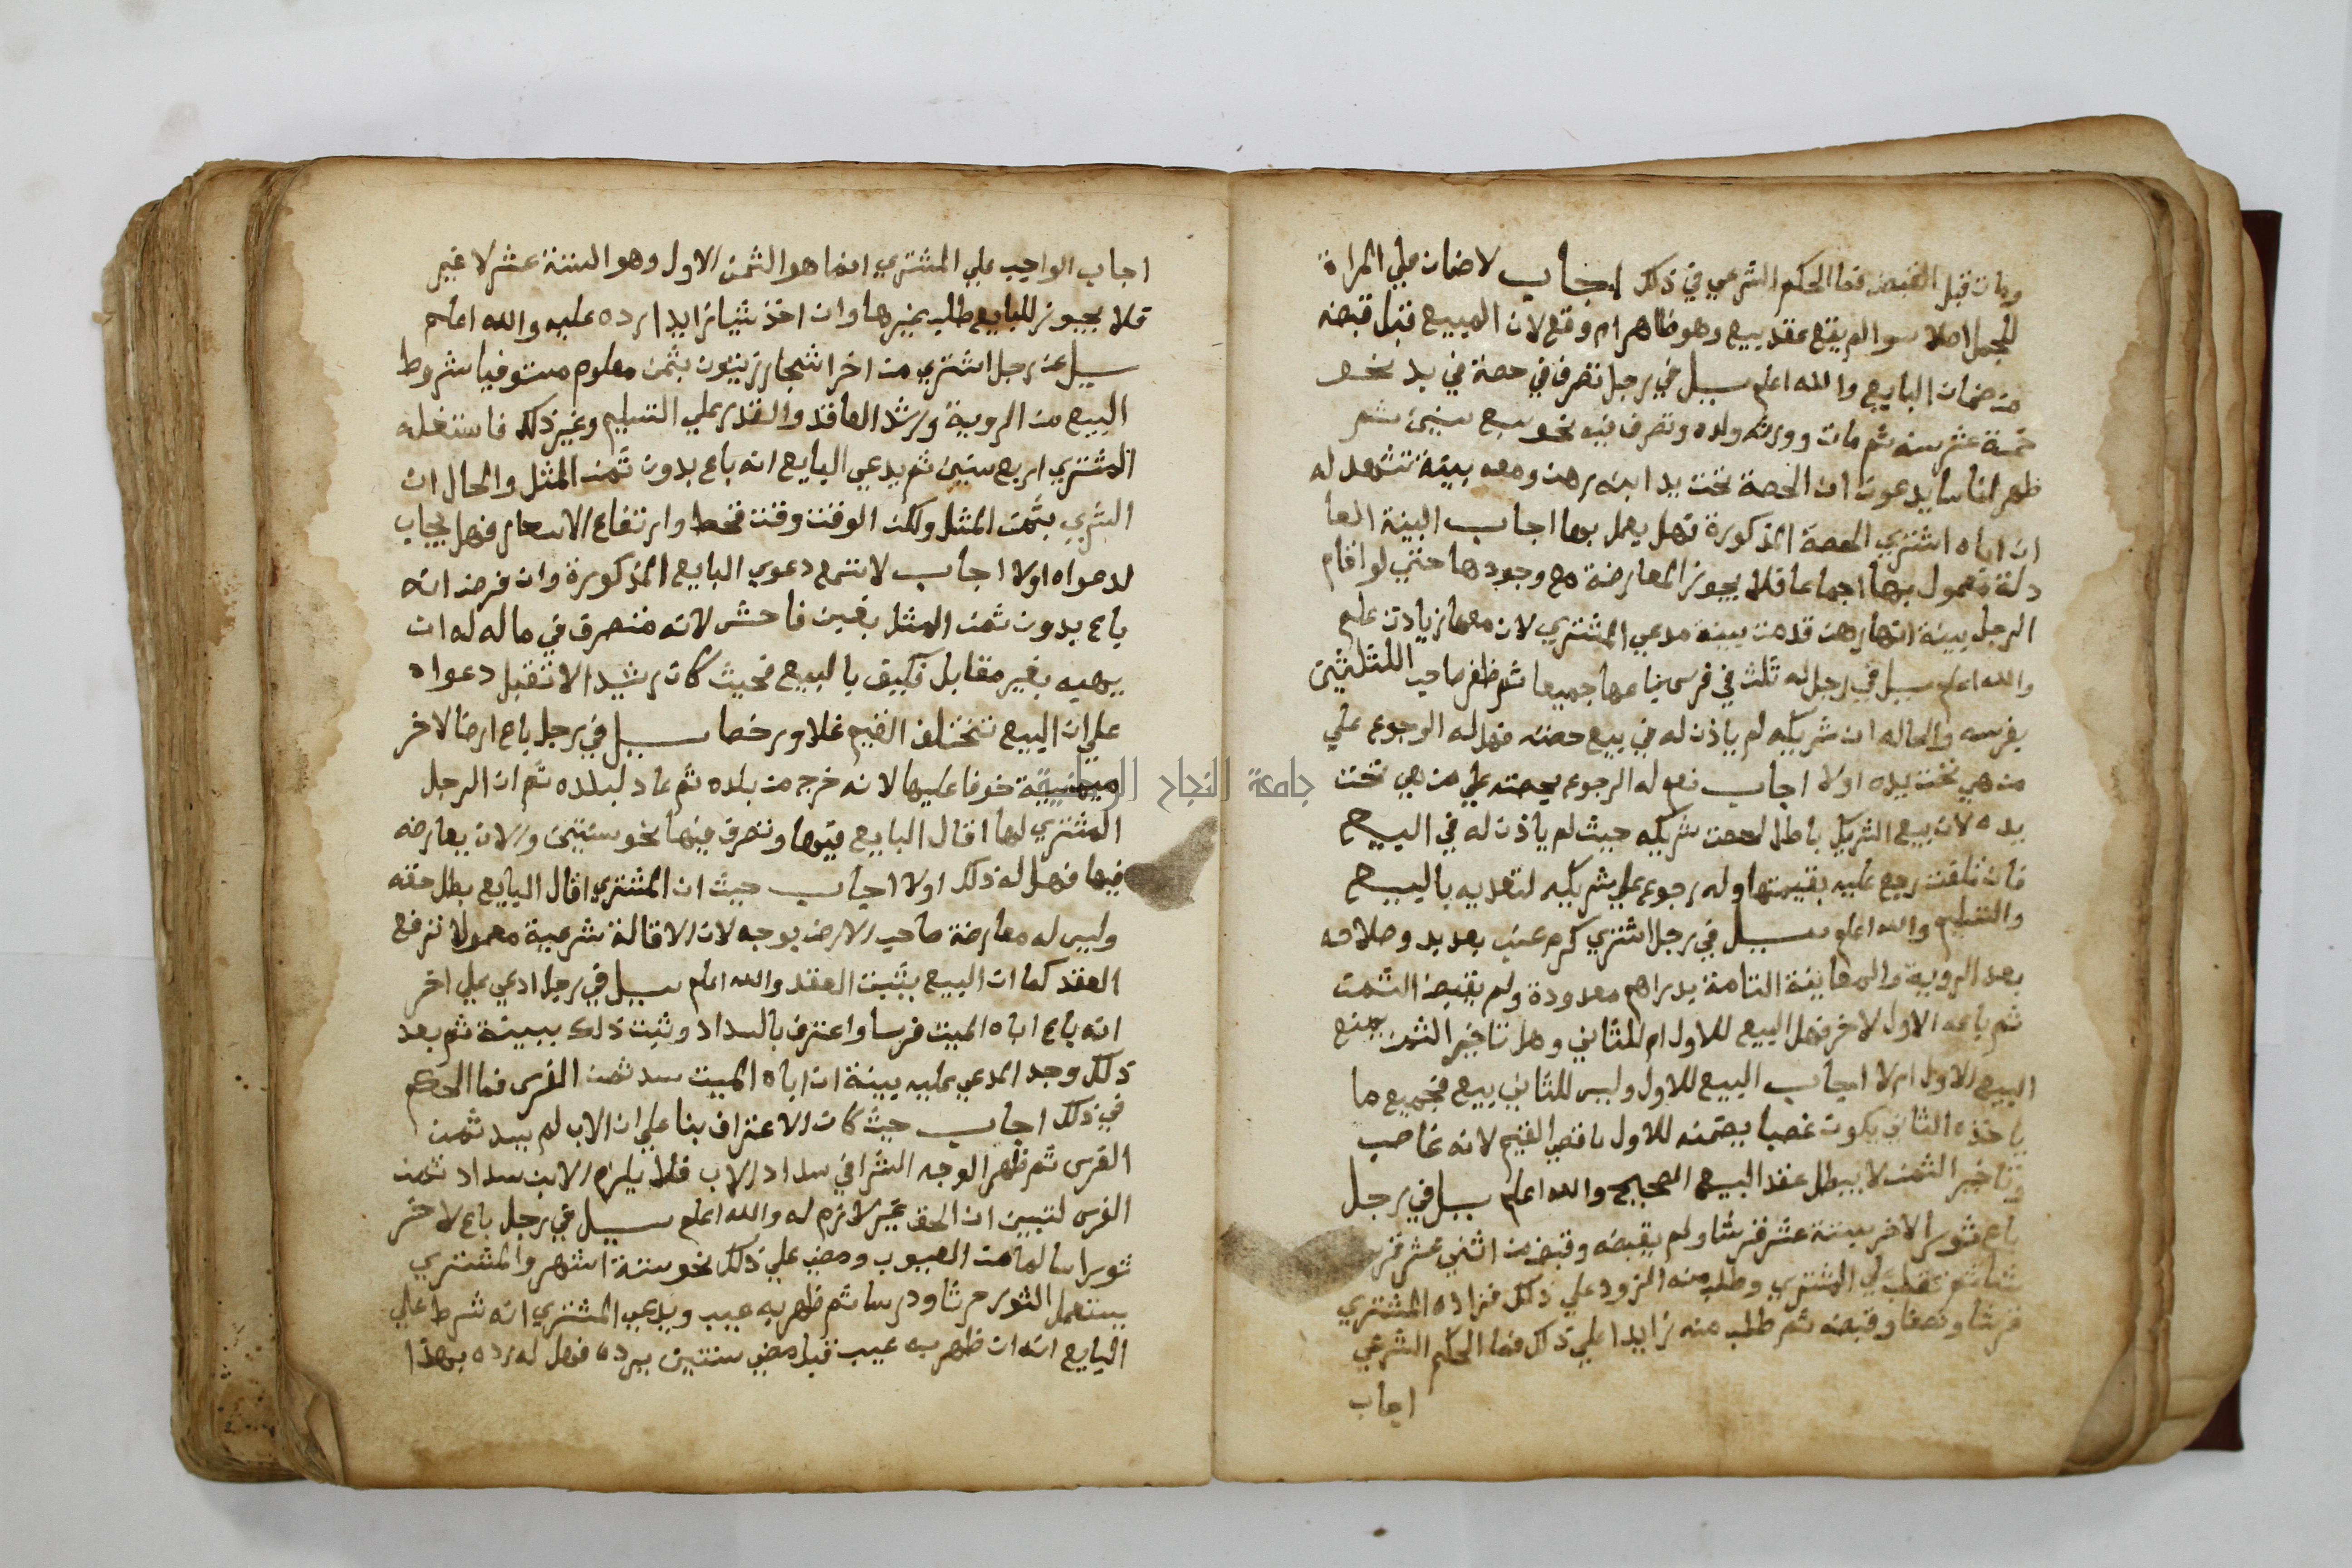 ومات قبل القبض فما الحكم الشرعي في ذلك اجاب لا ضمان علي المراة
للجمل اصلا سوا لم يقع عقد بيع وهو ظاهر ام وقع لان المبيع قبل قبضه
من ضمان البايع والله اعلم سيل في رجل تصرف في حصة في يد نحو
خمسة عشر سنه ثم مات وورثه ولده وتصرف فيه نحو سبع سنين ثم
ظهر اناسا يدعون ان الحصة تحت يد ابنه رهن ومعه بينة تشهد له
ان اباه اشتري الحصة المذكورة فهل يعمل بها اجاب البينة العا
دلة معمول بها اجماعا فلا يجوز المعارضة مع وجودها حتي لو اقام
الرجل بينة انها رهن قدمت بينة مدعي المشتري لان معها زيادت علم
والله اعلم سيل في رجل له ثلث في فرس فباعها جميعا ثم ظفر صاحب الثلثين
بفرسه والحاله ان شريكه لم ياذن له في بيع حصته فهل له الرجوع علي
من هي تحت يده اولا اجاب نعم له الرجوع بحصته علي من هي تحت
يده لان بيع الشريك باطل لحصت شريكه حيث لم ياذن له في البيع
فان تلفت رجع عليه بقيمتها وله رجوع علي شريكه لتعديه بالبيع
والتسليم والله اعلم سيل في رجل اشتري كرم عنب بعد بدو صلاحه
بعد الروية والمعاينة التامة بدراهم معدودة ولم يقبض الثمن
ثم باعه الاول لاخر فهل البيع للاول ام للثاني وهل تاخير الثمن يمنع
البيع الاول ام لا اجاب البيع للاول وليس للثاني بيع فجميع ما
ياخذه الثاني يكون غصبا يضمنه للاول باقصي القيم لانه غاصب
وتاخير الثمن لا يبطل عقد البيع الصحيح والله اعلم سيل في رجل
باع ثورا لاخر بستة عشر قرشا ولم يقبضه وقبض من اثني عشر قر
شا ثم تغلب علي المشتري وطلب منه الزود علي ذلك فزاده المشتري
قرشا ونصفا وقبضه ثم طلب منه زايدا علي ذلك فما الحكم الشرعي
اجاب
اجاب الواجب علي المشتري انما هو الثمن الاول وهو الستة عشر لا غير
فلا يجوز للبايع طلب غيرها وان اخذ شيا زايدا رده عليه والله اعلم
سيل عن رجل اشتري من اخر اشجار زيتون بثمن معلوم مستوفيا شروط
البيع من الروية ورشد العاقد والقدر علي التسليم وغير ذلك فاستغله
المشتري اربع سنين ثم يدعي البايع انه باع بدون ثمن المثل والحال ان
الشري بثمن المثل ولكن الوقت وقت قحط وارتفاع الاسعار فهل يجاب
لدعواه اولا اجاب لا تسمع دعوي البايع المذكورة وان فرض انه
باع بدون ثمن المثل بغبن فاحش لانه متصرف في ماله له ان
يهبه بغير مقابل فكيف بالبيع فحيث كان رشيدا لا تقبل دعواه
علي ان البيع تختلف القيم غلا ورخصا سيل في رجل باع ارضا لاخر
خوفا عليها لانه خرج من بلده ثم عاد لبلده ثم ان الرجل
المشتري لها اقال البايع فيها وتصرف فيها نحو سنتين والان يعارضه
فيها فهل له ذلك اولا اجاب حيث ان المشتري اقال البايع بطل حقه
وليس له معارضة صاحب الارض بوجه لان الاقالة شرعية معمولا ترفع
العقد كما ان البيع يثبت العقد والله اعلم سيل في رجل ادعي علي اخر
انه باع اباه الميت فرسا واعترف بالسداد وثبت ذلك ببينة ثم بعد
ذلك وجد المدعي عليه بينة ان اباه الميت سد ثمن الفرس فما الحكم
في ذلك اجاب حيث كان الاعتراف بنا علي ان الاب لم يسد ثمن
الفرس ثم ظهر الوجه الشرا في سداد الاب فلا يلزم الابن سداد ثمن
الفرس لتبين ان الحق غير لازم له والله اعلم سيل في رجل باع لاخر
ثورا سالما من العيوب ومضي علي ذلك نحو ستة اشهر والمشتري
يستعمل الثور حرثا ودرسا ثم ظهر به عيب ويدعي المشتري انه شرط علي
البايع انه ان ظهر به عيب قبل مضي سنتين يرده فهل له رده بهذا
جامعة النجاح الوطنية